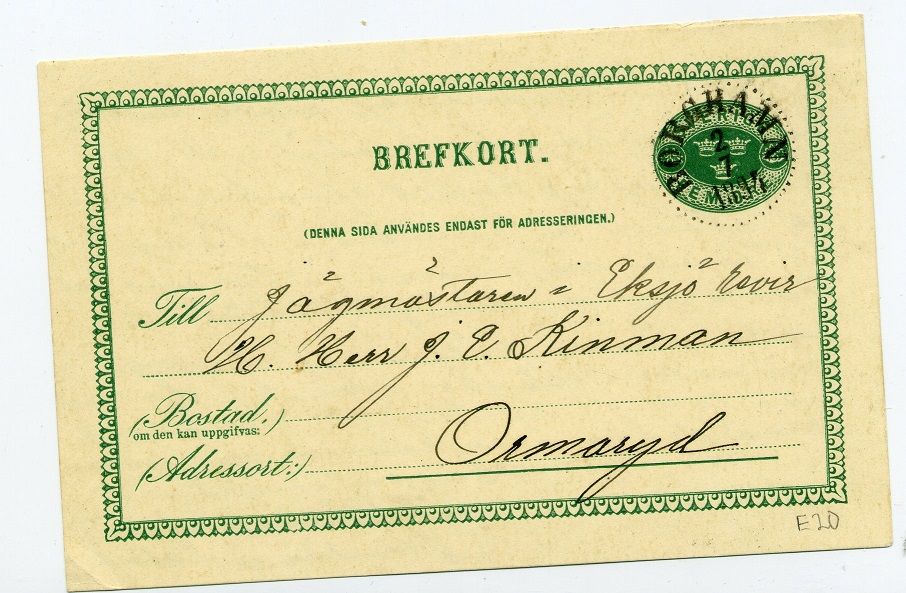 BREFKORT.
BORGHAMN
2
7
1894
(DENNA SIDA ANVÄNDES ENDAST FÖR ADRESSERINGEN.)
Till Jägmästaren i Eksjö revir
H. Herr J. E. Kinman
(Bostad.)
om den kan uppgifvas:
(Adressort:) Ormaryd
E20